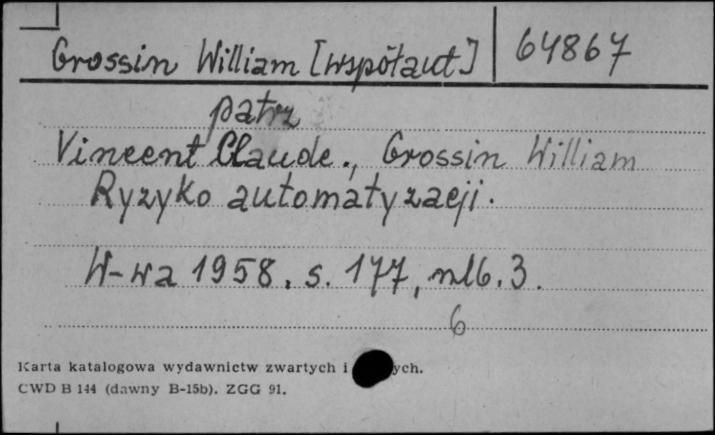 Grossin William [współaut] 64867
patrz
Vincent Claude., Grossin William
Ryzyko automatyzacji.
W-wa 1958. s. 177, nlb. 3.
6
Karta katalogowa wydawnictw zwartych i ych.
CWD B 144 (dawny B-15b). ZGG 91.